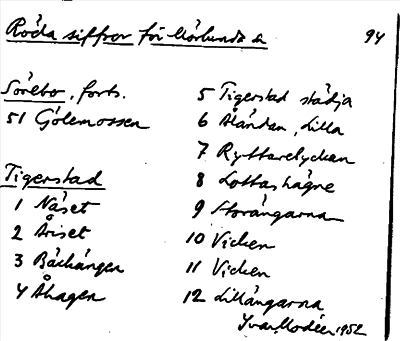 Röda siffror för Mörlunda sn 94
Sörebo, forts.
51 Gölemossen
Tigerstad
1 Näset
2 Åriset
3 Bäckängen
4 Åhagen
5 Tigerstad städja
6 Åländan, Lilla
7 Ryttarelyckan
8 Lottashägne
9 Storängarna
10 Vicken
11 Vicken
12 Lillängarna
Ivar Modéer 1952